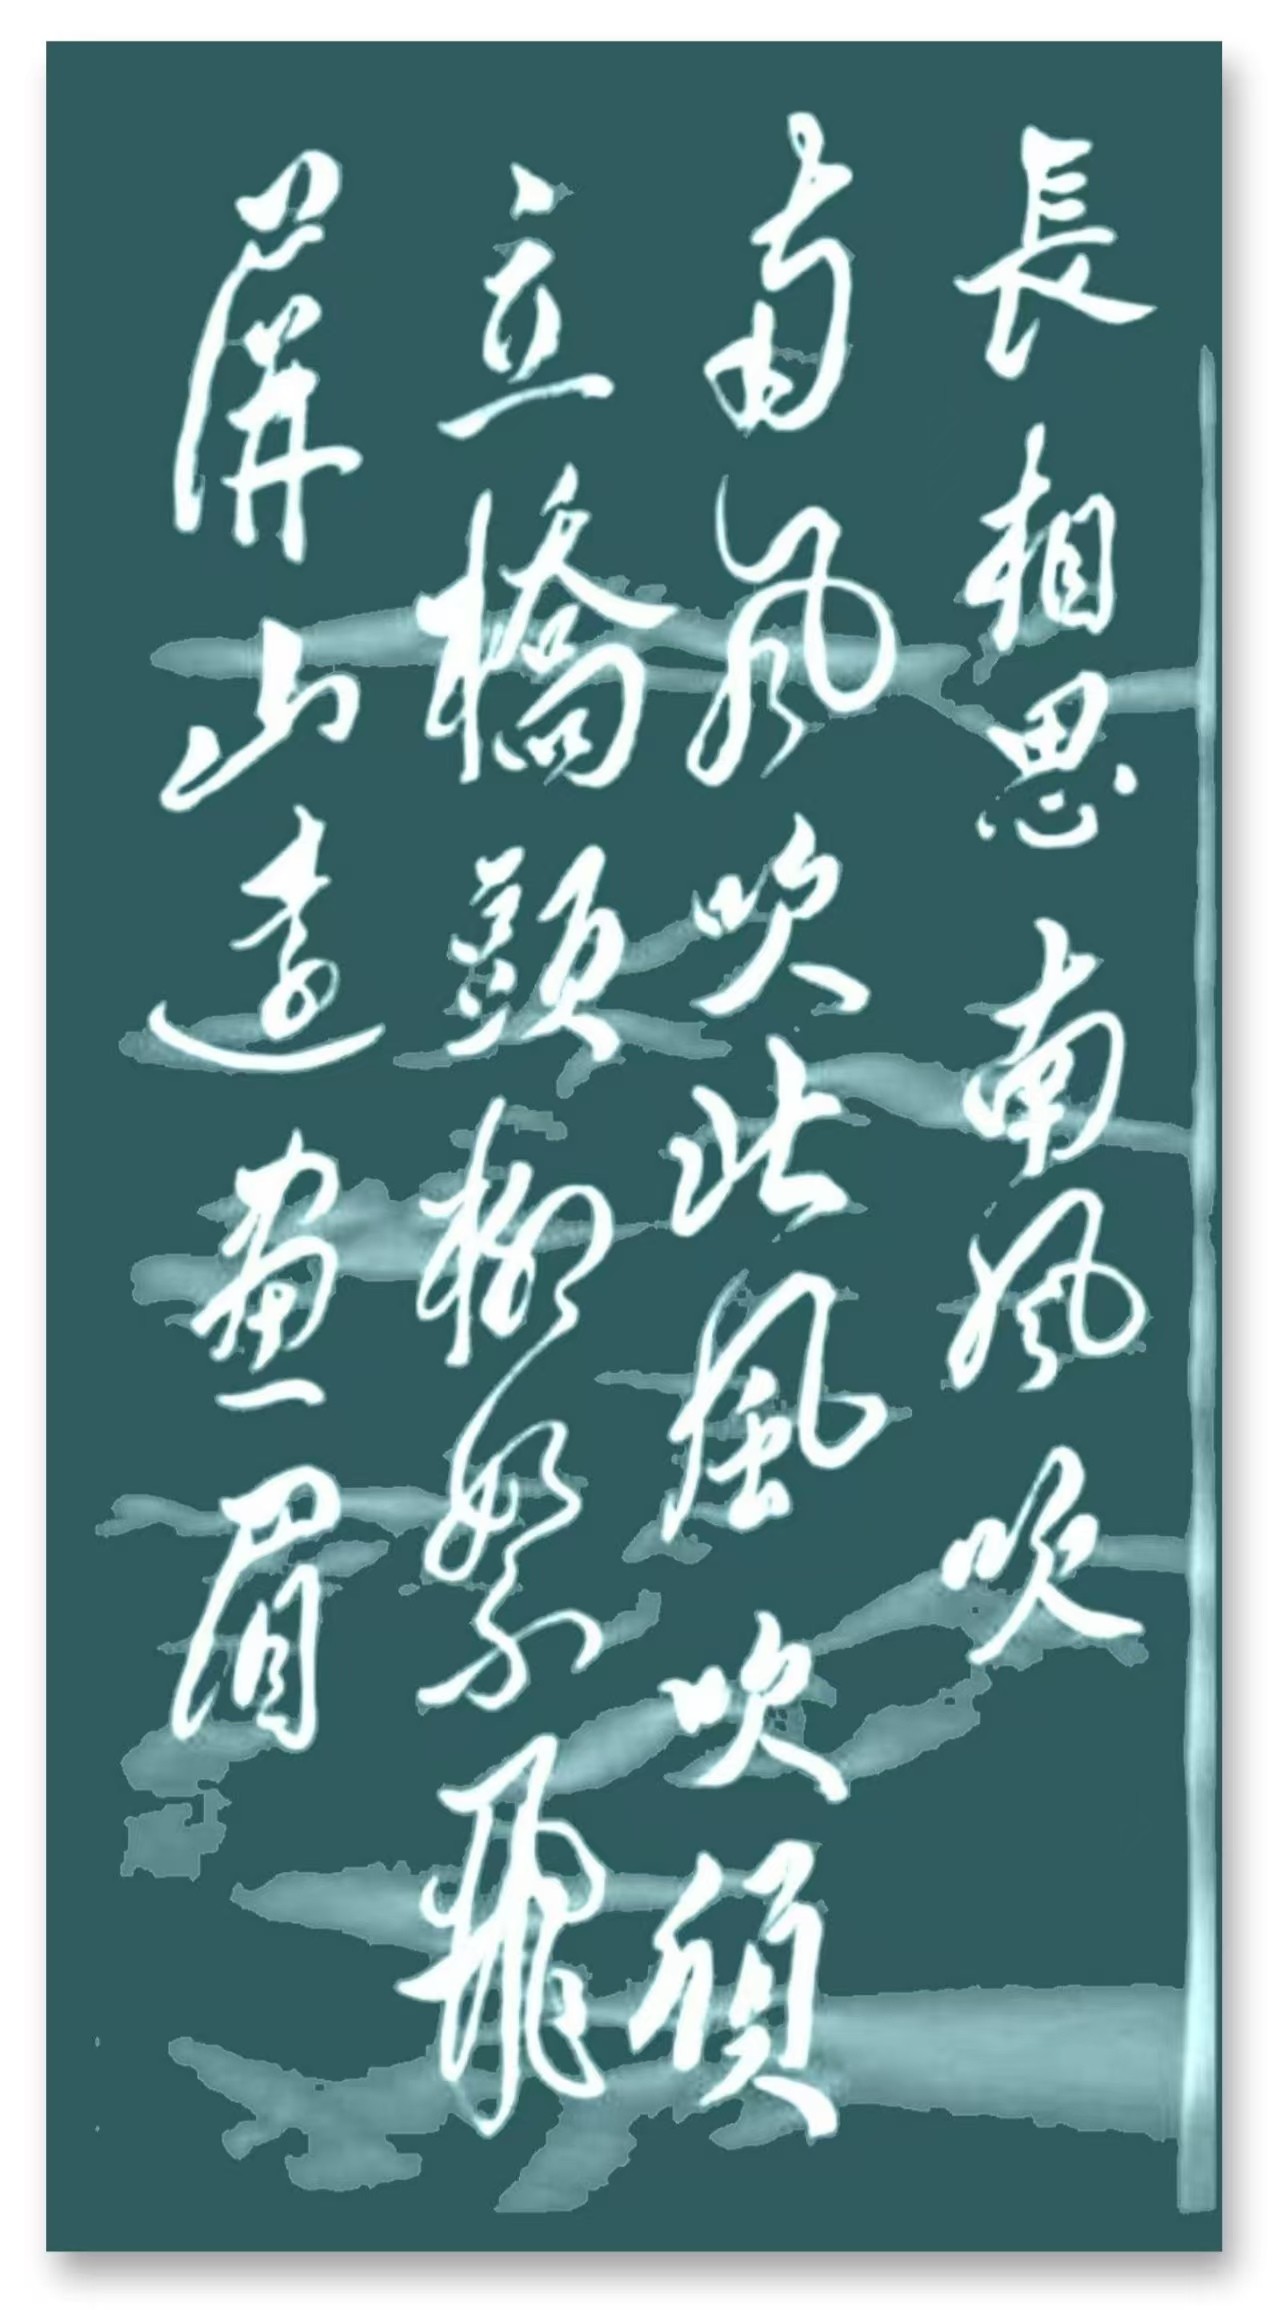 長相思 南風吹
南風吹北風吹
立橋頭柳絮飛
屏山遠畫眉